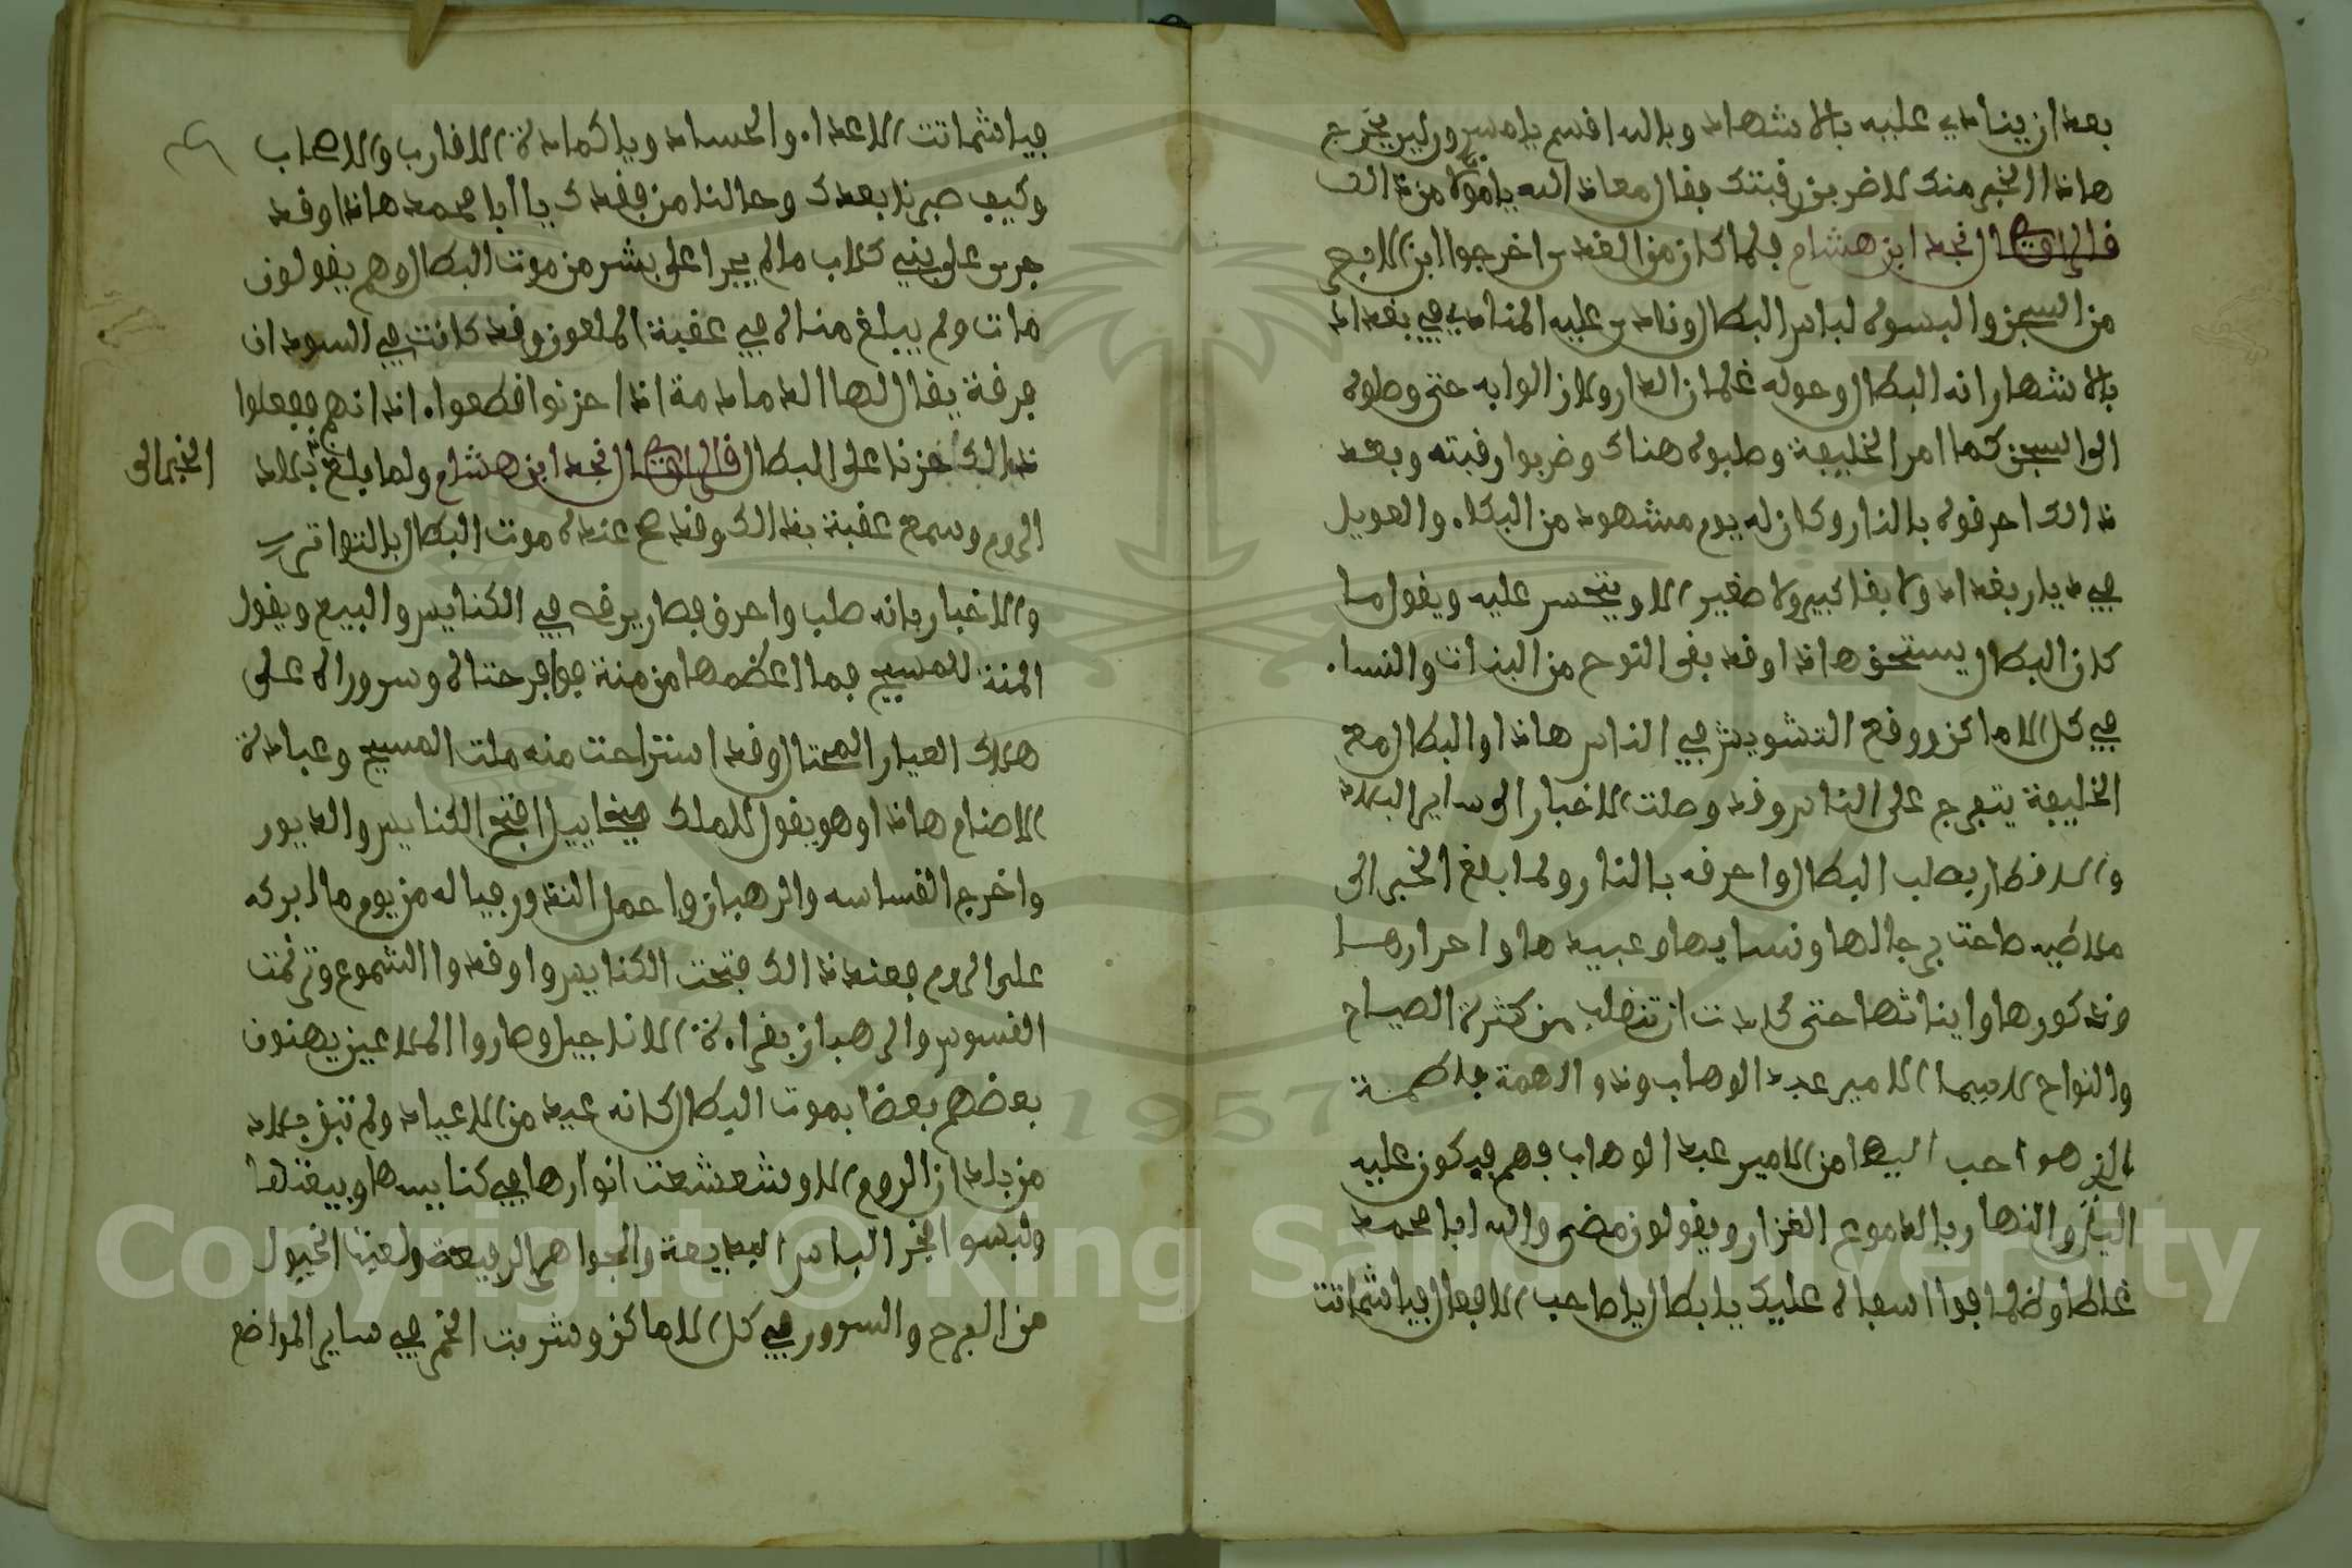 بعد ان ينادي عليه بالاشهاد وبالله اقسم يا مسرور لين يخرج
هاذا الخبر منك لاضربن رقبتك فقال معاذ الله يا مولاي من ذالك
قال الراوي نجد ابن هشام فلما كان من الغد اخرجوا ابن الافج
من السجن والبسوه لباس البطال ونادى عليه المنادي في بغداد
بالاشهار انه البطال وحوله غلمان الدار ولازالوا به حتى وصلوه
الى السجن كما امر الخليفة وصلبوه هناك وضربوا رقبته وبعد
ذالك احرقوه بالنار وكان له يوم مشهود من البكاء والعويل
في ديار بغداد ولا بقا كبير ولا صغير الا ويتحسر عليه ويقول ما
كان البطال يستحق هاذا وقد بقى النوح من البنات والنساء
في كل الاماكن ووقع التشويش في الناس هاذا والبطال مع
الخليفة يتفرج على الناس وقد وصلت الاخبار الى ساير البلاد
والاقطار بصلب البطال واحرقه بالنار ولما ابلغ الخبر الى
ملاطيه صاحت برجالها ونسايها وعبيدها واحرارها
وذكورها وايناثها حتى كادت ان تنقلب من كثرة الصياح
والنواح لاسيما الامير عبد الوهاب وذو الهمة فاطمة
الذي هو احب اليها من الامير عبد الوهاب وهم يبكون عليه
اليل والنهار بالدموع الغزار ويقولون مضى والله ابا محمد
غلطا وظلما فوا اسفاه عليك يا بطال يا صاحب الافعال فيا شماتت
فيا شماتت الاعداء والحساد ويا كمادة الاقارب والاصحاب
وكيف صبرنا بعدك وحالنا من فقدك يا ابا محمد هاذا وقد
جرى على بني كلاب ما لم يجرا على بشر من موت البطال وهم يقولون
مات ولم يبلغ مناه في عقبة الملعون وقد كانت في السودان
فرقة يقال لها الدمادمة اذا حزنوا قطعوا اذانهم ففعلوا
ذالك حزنا على البطال قال الراوي نجد ابن هشام ولما بلغ الخبر الى بلاد
الروم وسمع عقبة بذالك وقد صح عنده موت البطال بالتواتر
والاخبار بانه صلب واحرق فصار يرقص في الكنايس والبيع ويقول
المنة للمسيح فما اعظمها من منة فوا فرحتاه وسروراه على
هلاك العيار المحتال وقد استراحت منه ملت المسيح وعبادة
الاصنام هاذا وهو يقول للملك ميخاييل افتح الكنايس والديور
واخرج القساسه والرهبان واعمل النذور فيا له من يوم ما ابركه
على الروم فعند ذالك فتحت الكنايس واوقدوا الشموع وترنمت
القسوس والرهبان بقراءة الاناجيل وصاروا الملاعين يهنون
بعضهم بعضا بموت البطال كانه عيد من الاعياد ولم تبق بلاد
من بلدان الروم الا وشعشعت انوارها في كنايسها وبيعتها
ولبسو الخر الباس البديعة والجواهر الرفيعة ولعبت الخيول
من الفرح والسرور في كل الاماكن وشربت الخمر في ساير المواضع